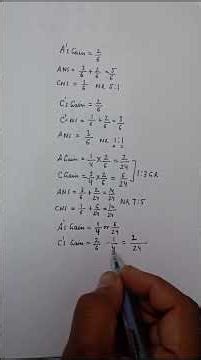 A's Gain = 2/6
ANS = 3/6 + 2/6 = 5/6
CNS = 1/6 NR 5:1
C's Gain = 2/6
C' NS = 1/6 + 2/6 = 3/6
ANS = 3/6 NR 1:1
A Gain = 1/4 x 2/6 = 2/24
C Gain = 3/4 x 2/6 = 6/24 1:3 GR
ANS = 3/6 + 2/24 = 14/24
CNS = 1/6 + 6/24 = 10/24 NR 7:5
A's Gain = 1/4 or 6/24
C's Gain = 2/6 - 1/4 = 2/24